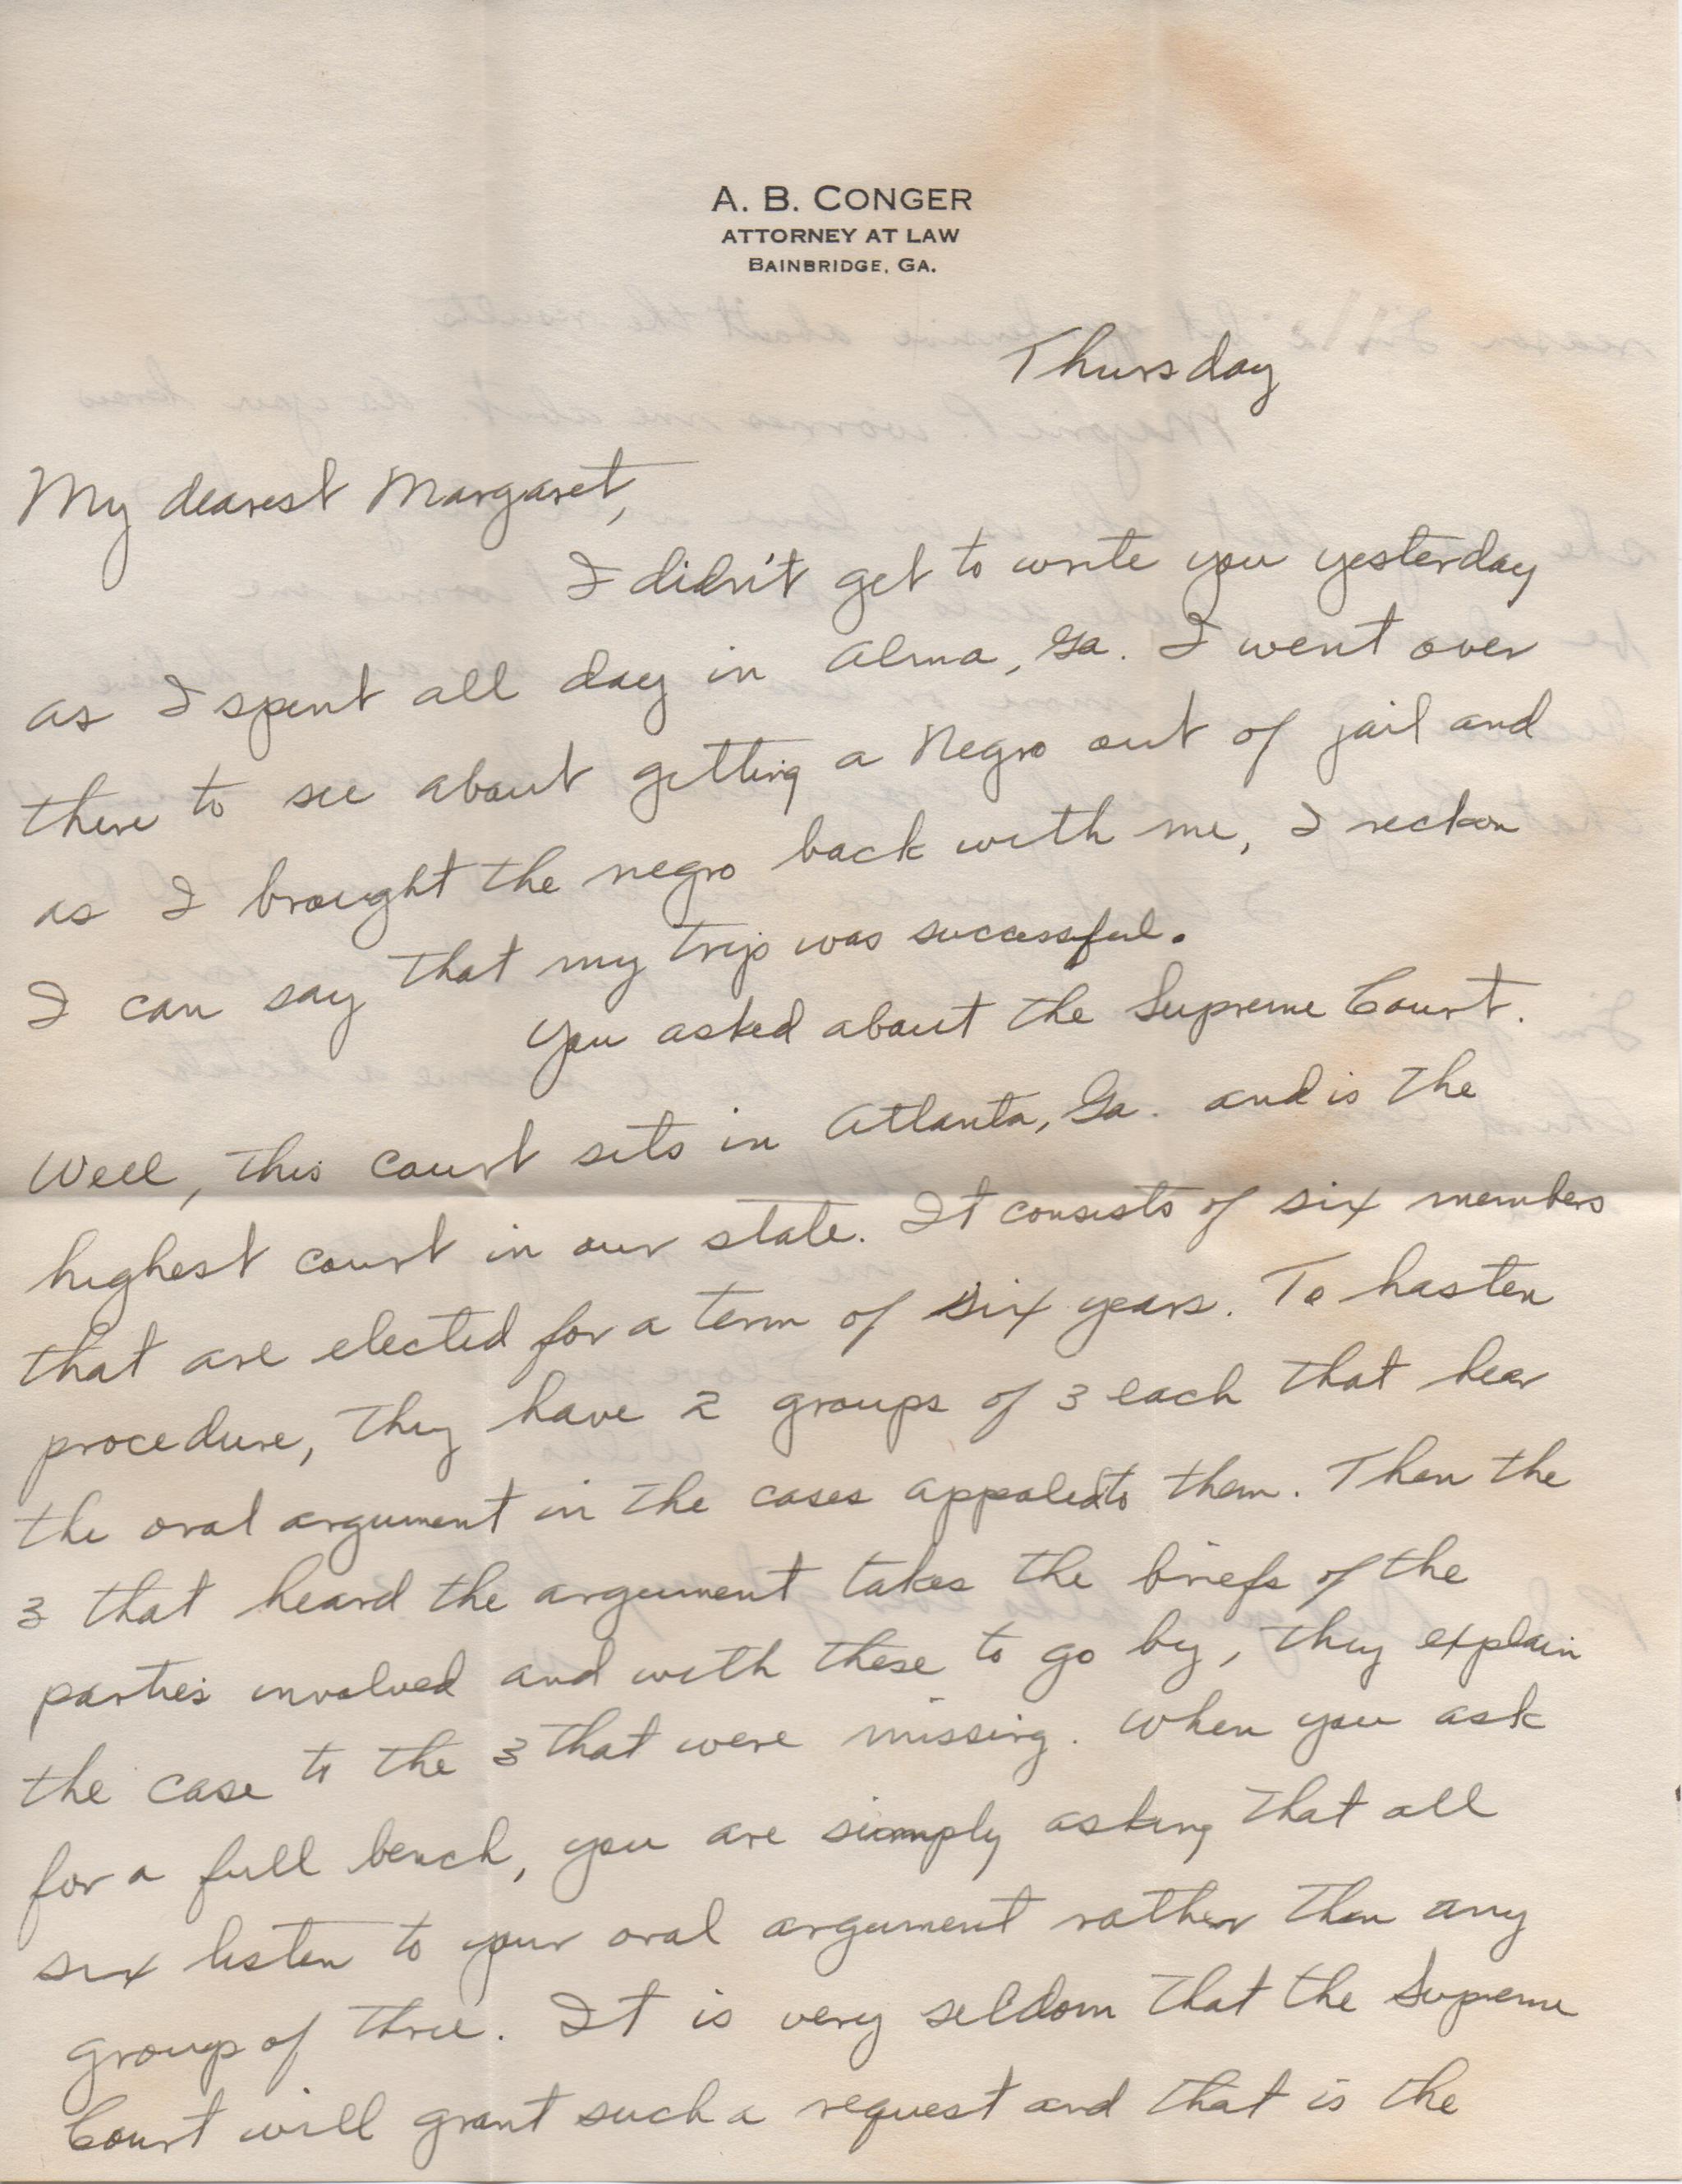 A. B. CONGER
ATTORNEY AT LAW
BAINBRIDGE, GA.
Thursday
My dearest Margaret,
I didn't get to write you yesterday
as I spent all day in Alma, Ga. I went over
there to see about getting a Negro out of jail and
as I brought the negro back with me, I reckon
I can say that my trip was successful.
You asked about the Supreme Court.
Well, this court sits in Atlanta, Ga. and is the
highest court in our state. It consists of six members
that are elected for a term of six years. To hasten
procedure, they have 2 groups of 3 each that hear
the oral argument in the cases appealed to them. Then the
3 that heard the argument takes the briefs of the
parties involved and with these to go by, they explain
the case to the 3 that were missing. When you ask
for a full bench, you are simply asking that all
six listen to your oral argument rather than any
group of three. It is very seldom that the Supreme
Court will grant such a request and that is the